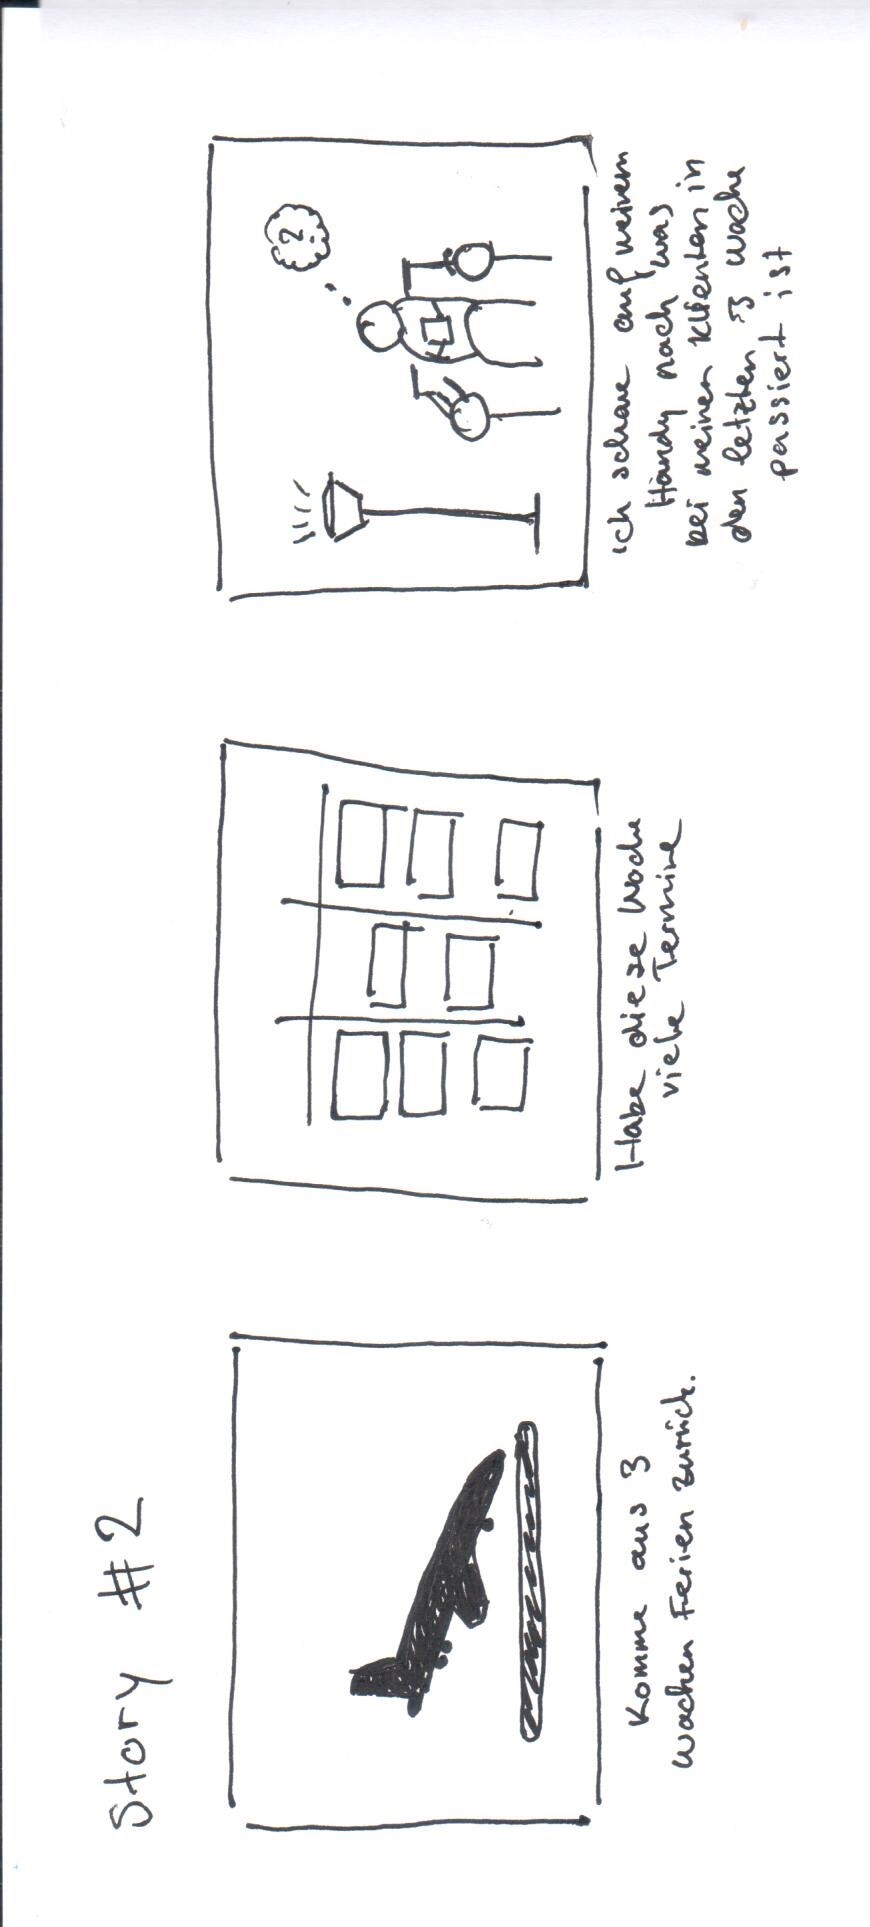 Story #2
?
Komme aus 3
Wochen Ferien zurück.
Habe diese Woche
viele Termine
ich schaue auf meinem
Handy nach was
bei meinen Klienten in
den letzten 3 Woche
passiert ist